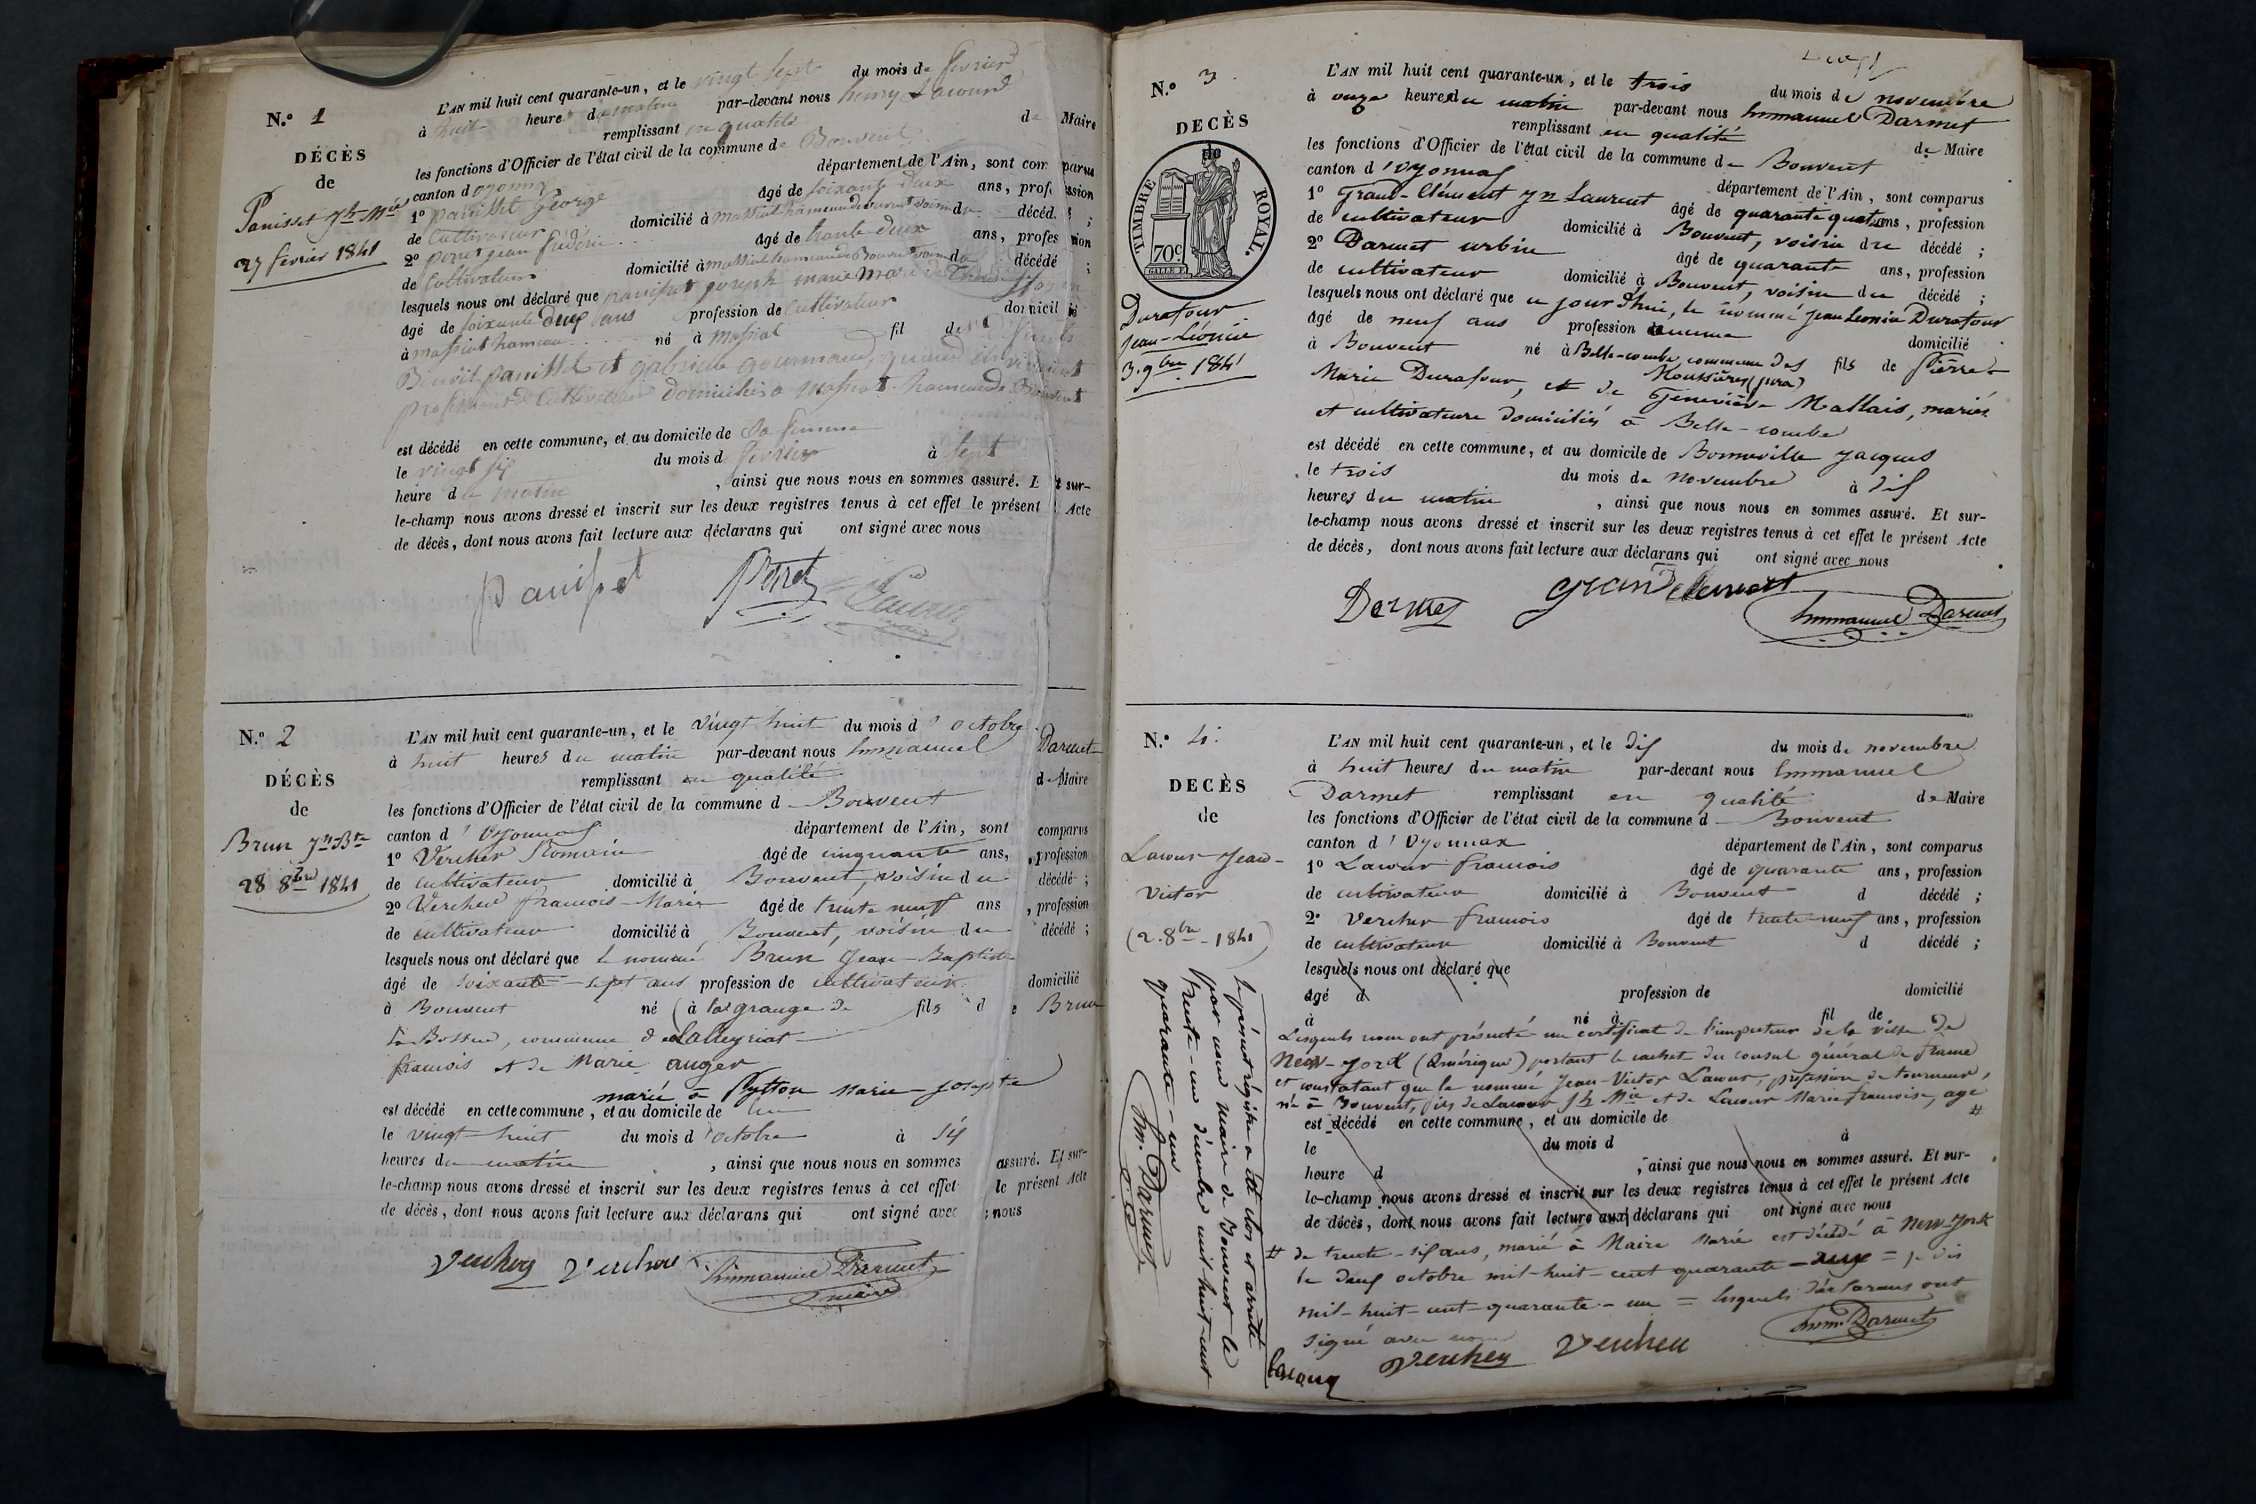 N.o 1
DÉCÈS
de
Panisset Jh Mie
27 février 1841
L'AN mil huit cent quarante-un, et le vingt sept du mois de février
à huit heure du matin par-devant nous henry Lacour
remplissant en qualité de Maire
les fonctions d'Officier de l'état civil de la commune de Bouvent
canton d oyonnax département de l'Ain, sont comparus
1o panisset george âgé de soixante deux ans, profession
de Cultivateur domicilié à massiat hameau de bouvent voisin du décédé ;
2o perret jean frédéric âgé de trente deux ans, profession
de Cultivateur domicilié à massiat hameau de Bouvent voisin du décédé ;
lesquels nous ont déclaré que panisset joseph marie
âgé de soixante deux ans profession de Cultivateur domicilié
à massiat hameau né à Massiat fil de
Benoit panisset et gabrielle gourmand, quand ils vivaient
profession de Cultivateur domiciliés à Massiat hameau de Bouvent
est décédé en cette commune, et au domicile de Sa femme
le vingt six du mois de février à sept
heure du matin , ainsi que nous nous en sommes assuré. Et sur-
le-champ nous avons dressé et inscrit sur les deux registres tenus à cet effet le présent Acte
de décès, dont nous avons fait lecture aux déclarans qui ont signé avec nous
panisset Perret Lacour
N.o 2
DÉCÈS
de
Brun Jn Bte
28 8bre 1841
L'AN mil huit cent quarante-un, et le vingt huit du mois d'octobre
à huit heures du matin par-devant nous Emmanuel Darmet
remplissant en qualité de Maire
les fonctions d'Officier de l'état civil de la commune d Bouvent
canton d'Oyonnax département de l'Ain, sont comparus
1o Vercher Romain âgé de cinquante ans, profession
de cultivateur domicilié à Bouvent, voisin du décédé ;
2o Vercher françois-Marie âgé de trente neuf ans , profession
de cultivateur domicilié à Bouvent, voisin du décédé ;
lesquels nous ont déclaré que le nommé Brun Jean-Baptiste
âgé de soixante-sept ans profession de cultivateur domicilié
à Bouvent né (à la grange de fils de Brun
la Bossue, commune de Lalleyriat
françois et de Marie auger
marié à Pytton Marie-josepte
est décédé en cette commune, et au domicile de lui
le vingt-huit du mois d'octobre à six
heures du matin , ainsi que nous nous en sommes assuré. Et sur-
le-champ nous avons dressé et inscrit sur les deux registres tenus à cet effet le présent Acte
de décès, dont nous avons fait lecture aux déclarans qui ont signé avec nous
Vercher Vercher Emmanuel Darmet
maire
N.o 3
DECÈS
de
TIMBRE ROYAL.
70c
Durafour
Jean-Léonin
3 9bre 1841
L'AN mil huit cent quarante-un, et le trois du mois de novembre
à onze heures du matin par-devant nous Emmanuel Darmet
remplissant en qualité de Maire
les fonctions d'Officier de l'état civil de la commune de Bouvent
canton d'Oyonnax département de l'Ain, sont comparus
1o Grand-Clément Jn Laurent âgé de quarante quatre ans, profession
de cultivateur domicilié à Bouvent, voisin du décédé ;
2o Darmet urbin âgé de quarante ans, profession
de cultivateur domicilié à Bouvent, voisin du décédé ;
lesquels nous ont déclaré que ce jour d'hui, le nommé Jean Leonin Durafour
âgé de neuf ans profession d'aucune domicilié
à Bouvent né à Belle-combe, commune des fils de Pierre-
Moussières (jura)
Marie Durafour, et de Geneviève Mallais, mariés
et cultivateurs domiciliés à Belle-combe
est décédé en cette commune, et au domicile de Bonneville Jacques
le trois du mois de novembre à dix
heures du matin , ainsi que nous nous en sommes assuré. Et sur-
le-champ nous avons dressé et inscrit sur les deux registres tenus à cet effet le présent Acte
de décès, dont nous avons fait lecture aux déclarans qui ont signé avec nous
Darmet Grand Clement Emmanuel Darmet
N.o 4.
DECÈS
de
Lacour Jean-
Victor
(2. 8bre 1841)
L'AN mil huit cent quarante-un, et le dix du mois de novembre
à huit heures du matin par-devant nous Emmanuel
Darmet remplissant en qualité de Maire
les fonctions d'Officier de l'état civil de la commune d Bouvent
canton d'Oyonnax département de l'Ain, sont comparus
1o Lacour francois âgé de quarante ans, profession
de cultivateur domicilié à Bouvent d décédé ;
2o Vercher francois âgé de trente-neuf ans, profession
de cultivateur domicilié à Bouvent d décédé ;
lesquels nous ont déclaré que
âgé d profession de domicilié
à né à fil de
Lesquels nous ont présenté un certificat de l'inspecteur de la ville de
New-york (Amérique) portant le cachet du consul général de france
et constatant que le nommé Jean-Victor Lacour, profession de tourneur,
né à Bouvent, fils de Lacour Jh Mie et de Lacour Marie françoise, agé #
est décédé en cette commune, et au domicile de
le du mois d à
heure d , ainsi que nous nous en sommes assuré. Et sur-
le-champ nous avons dressé et inscrit sur les deux registres tenus à cet effet le présent Acte
de décès, dont nous avons fait lecture aux déclarans qui ont signé avec nous
# de trente-six ans, marié à Maire Marie est décédé à New-York
le deux octobre mil-huit-cent quarante-deux = je dis
mil-huit-cent-quarante-un = lesquels déclarans ont
signé avec nous
Lacour Vercher Vercher Emm. Darmet
Le présent régistre a été clos et arrêté
par nous Maire de Bouvent le
trente-un décembre mil huit-cent
quarante-un
Em. Darmet